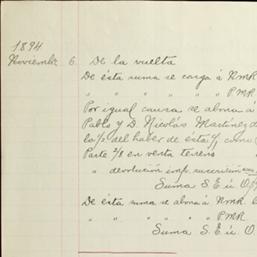 1894
Noviembre 6. De la vuelta
De ésta suma se carga á NMR.
" " " " " PMR
Por igual causa se abona á
Pablo y D. Nicolás Martínez d
del haber de ésta
Parte 2/8 en venta terreno
" devolución imp. suscrición
Suma S. E. ú O.
De ésta suma se abona á NMR.
" " " " " PMR
Suma S. E. ú O.